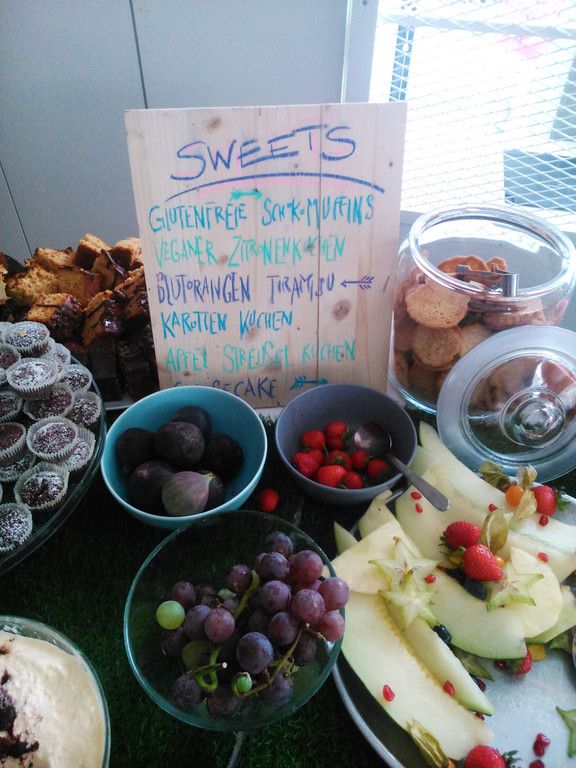 SWEETS
GLUTENFREIE SCHOKOMUFFINS
VEGANER ZITRONENKUCHEN
BLUTORANGEN TIRAMISU
KAROTTEN KUCHEN
APFEL STREUSEL KUCHEN
CHEESECAKE